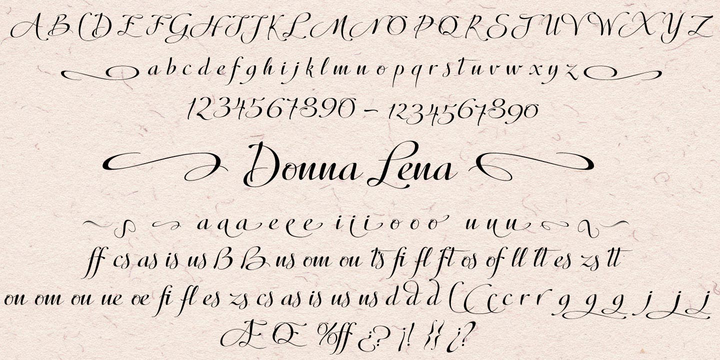 A B C D E F G H I J K L M N O P Q R S T U V W X Y Z
a b c d e f g h i j k l m n o p q r s t u v w x y z
1234567890 – 1234567890
Donna Lena
a a a e e e i i i o o o u u u
ff cs as is us B B ns om on ts fi fl ft os of ll tt es zs tt
on om ou ue oe fi fl es zs cs as is us ns d d d ( C c c r r g g g j j j
Æ Œ % ff ¿ ? ¡ ! { } ¿ ?